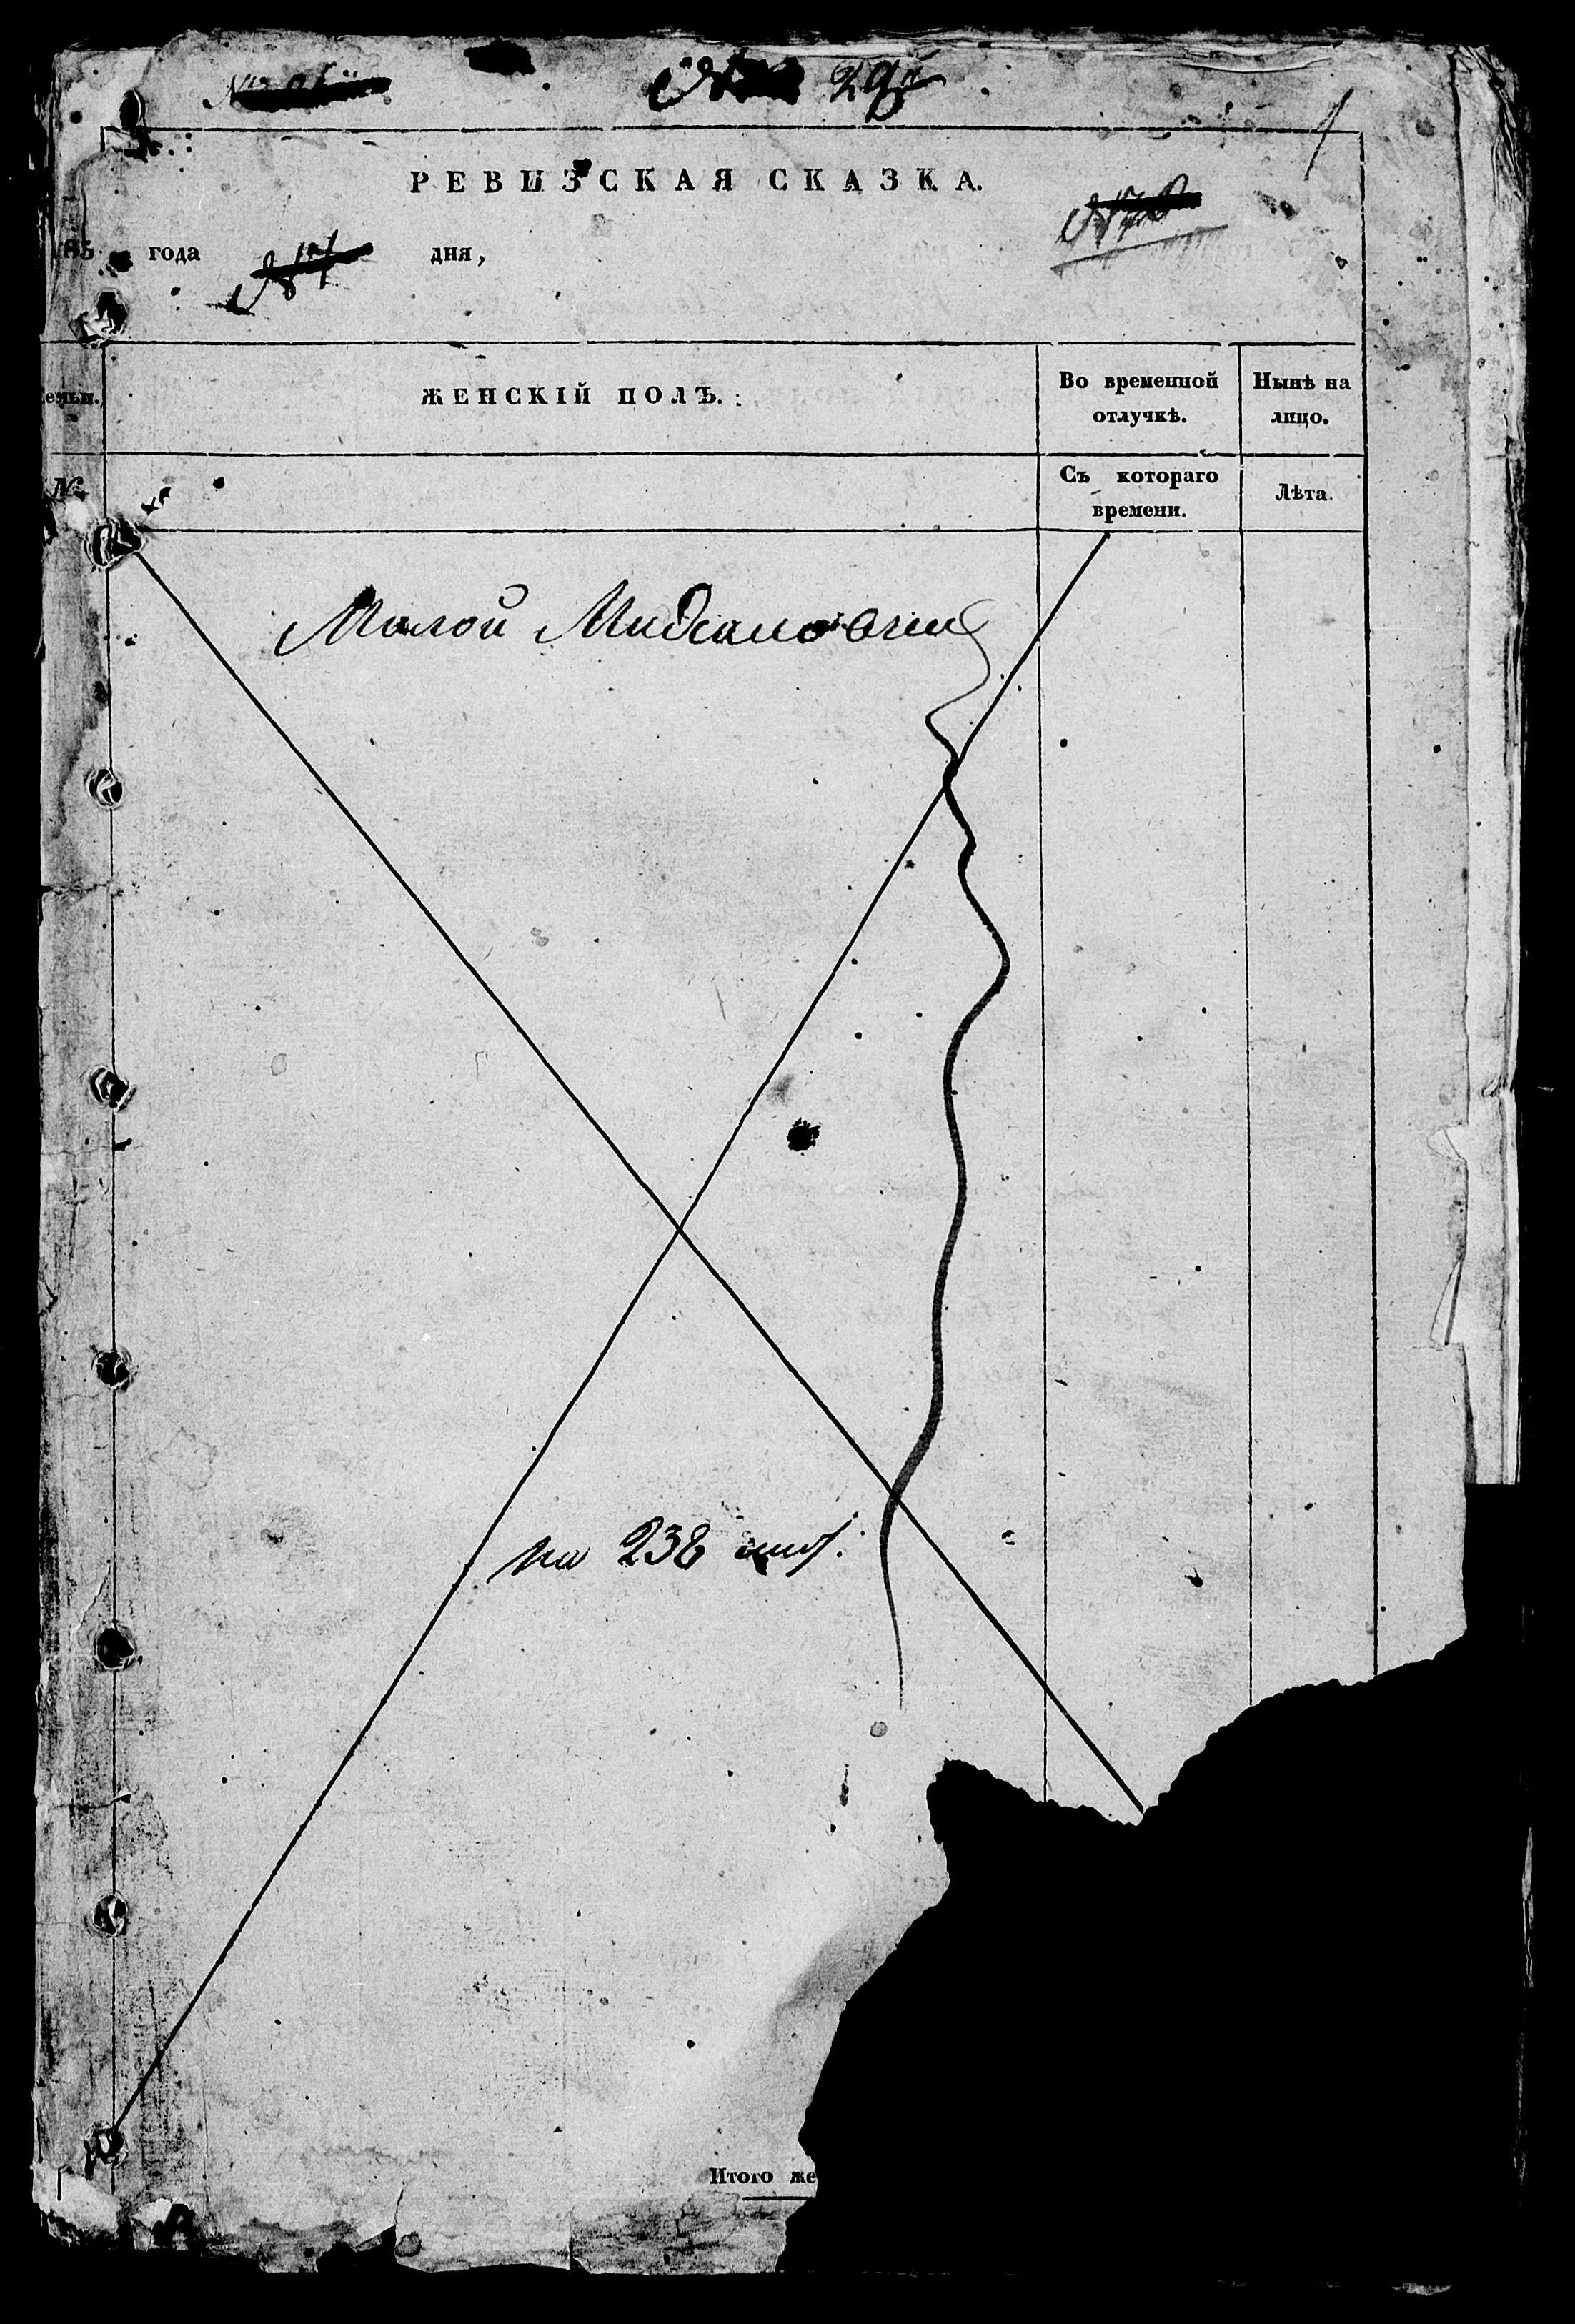 29
1
РЕВИЗСКАЯ СКАЗКА.
185 года дня,
емьи.
ЖЕНСКІЙ ПОЛЪ.
Во временной
отлучкѣ.
Нынѣ на
лицо.
№
Съ котораго
времени.
Лѣта.
Малой
на 238
Итого же